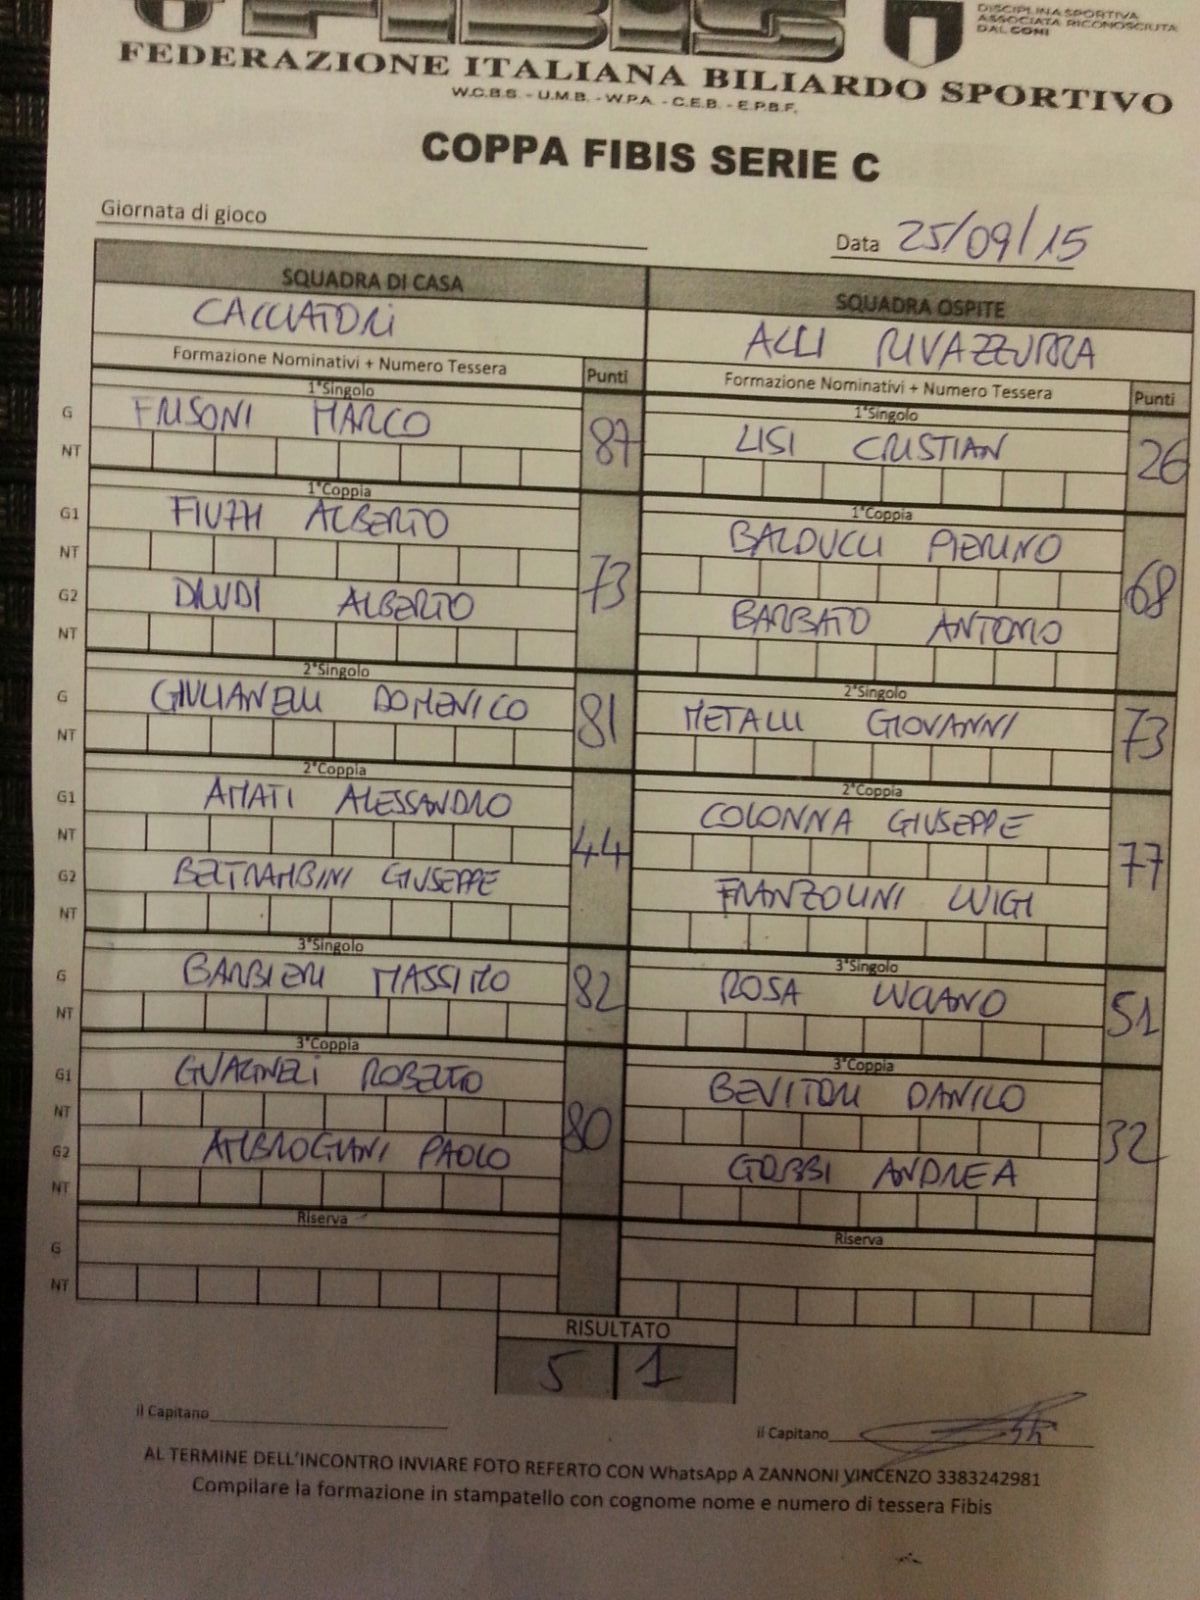 FIBIS
DISCIPLINA SPORTIVA
ASSOCIATA RICONOSCIUTA
DAL CONI
FEDERAZIONE ITALIANA BILIARDO SPORTIVO
W.C.B.S. - U.M.B. - W.P.A. - C.E.B. - E.P.B.F.
COPPA FIBIS SERIE C
Giornata di gioco
Data 25/09/15
SQUADRA DI CASA SQUADRA OSPITE
CACCIATORI ACLI RIVAZZURRA
Formazione Nominativi + Numero Tessera Punti Formazione Nominativi + Numero Tessera Punti
1°Singolo 1°Singolo
G FRISONI MARCO 87 LISI CRISTIAN 26
NT
1°Coppia 1°Coppia
G1 ALBERTO 73 BALDUCCI PIERINO 68
NT
G2 DRUDI ALBERTO BARBATO ANTONIO
NT
2°Singolo 2°Singolo
G GIULIANELLI DOMENICO 81 METALLI GIOVANNI 73
NT
2°Coppia 2°Coppia
G1 AMATI ALESSANDRO 44 COLONNA GIUSEPPE 77
NT
G2 BELTRAMBINI GIUSEPPE FRANZOLINI LUIGI
NT
3°Singolo 3°Singolo
G BARBIERI MASSIMO 82 ROSA LUCIANO 51
NT
3°Coppia 3°Coppia
G1 ROBERTO 80 BEVITORI DANILO 32
NT
G2 AMBROGIANI PAOLO GOBBI ANDREA
NT
Riserva Riserva
G
NT
RISULTATO
5 1
il Capitano il Capitano
AL TERMINE DELL'INCONTRO INVIARE FOTO REFERTO CON WhatsApp A ZANNONI VINCENZO 3383242981
Compilare la formazione in stampatello con cognome nome e numero di tessera Fibis